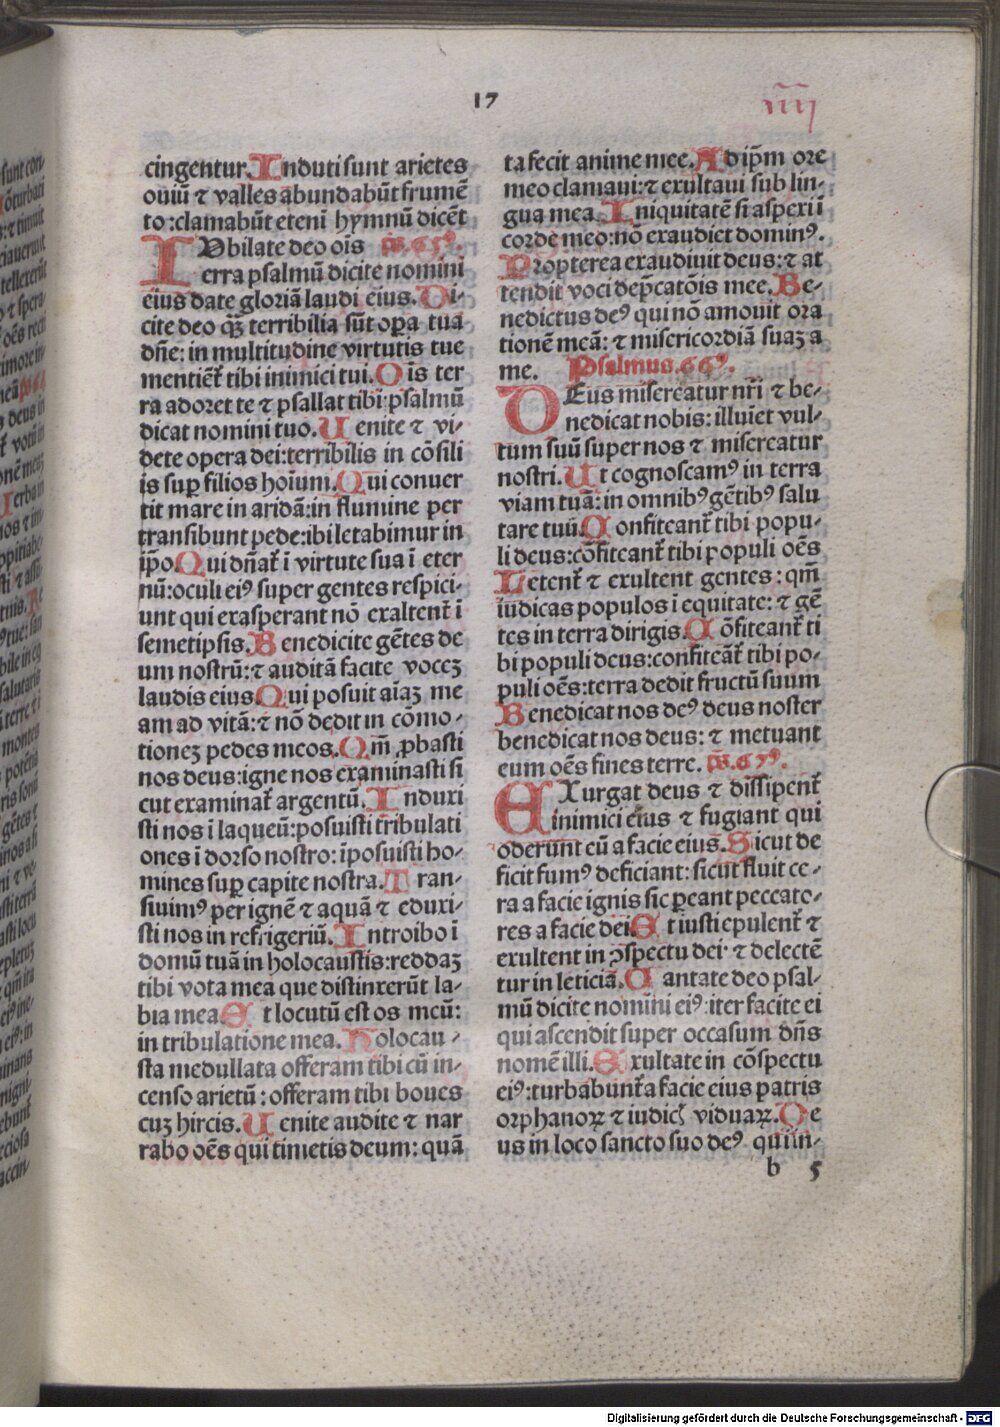 17
iiij
cingentur. Induti sunt arietes
ouiū ⁊ valles abundabūt frumē
to: clamabūt etenī hymnū dicēt
IVbilate deo oīs ps.65ꝰ.
terra psalmū dicite nomini
eius date gloriā laudi eius. Di-
cite deo qꝫ̄ terribilia sūt oꝑa tua
dn̄e: in multitudine virtutis tue
mentient̄ tibi inimici tui. Oīs ter
ra adoret te ⁊ psallat tibi: psalmū
dicat nomini tuo. Uenite ⁊ vi-
dete opera dei: terribilis in cōsili
is suꝑ filios hoīum. Qui conuer
tit mare in aridā: in flumine per
transibunt pede: ibi letabimur in
ip̄o. Qui dn̄at̄ ī virtute sua ī eter
nū: oculi eiꝰ super gentes respici-
unt qui exasperant nō exaltent̄ ī
semetipsis. Benedicite gētes de
um nostrū: ⁊ auditā facite voceꝫ
laudis eius. Qui posuit aīaꝫ me
am ad vitā: ⁊ nō dedit in cōmo-
tioneꝫ pedes meos. Qm̄ ꝓbasti
nos deus: igne nos examinasti si
cut examinat̄ argentū. Induxi
sti nos ī laqueū: posuisti tribulati
ones ī dorso nostro: īposuisti ho-
mines suꝑ capite nostra. Tran-
siuimꝰ per ignē ⁊ aquā ⁊ eduxi-
sti nos in refrigeriū. Introibo ī
domū tuā in holocaustis: reddaꝫ
tibi vota mea que distinxerūt la-
bia mea. Et locutū est os meū:
in tribulatione mea. Holocau-
sta medullata offeram tibi cū in-
censo arietū: offeram tibi boues
cuꝫ hircis. Uenite audite ⁊ nar
rabo oēs qui timetis deum: quā
ta fecit anime mee. Ad ip̄m ore
meo clamaui: ⁊ exultaui sub lin-
gua mea. Iniquitatē si asperi ī
corde meo: nō exaudiet dominꝰ.
Propterea exaudiuit deus: ⁊ at
tendit voci dep̄catōis mee. Be-
nedictus deꝰ qui nō amouit ora
tionē meā: ⁊ misericordiā suaꝫ a
me. Psalmus.66ꝰ.
DEus misereatur nr̄i ⁊ be-
nedicat nobis: illuīet vul-
tum suū super nos ⁊ misereatur
nostri. Ut cognoscamꝰ in terra
viam tuā: in omnibꝰ gētibꝰ salu
tare tuū. Confiteant̄ tibi popu-
li deus: cōfiteant̄ tibi populi oēs
Letent̄ ⁊ exultent gentes: qm̄
iudicas populos ī equitate: ⁊ gē
tes in terra dirigis. Cōfiteant̄ ti
bi populi deus: confiteāt̄ tibi po-
puli oēs: terra dedit fructū suum
Benedicat nos deꝰ deus noster
benedicat nos deus: ⁊ metuant
eum oēs fines terre. ps.67ꝰ.
EXurgat deus ⁊ dissipent̄
inimici eius ⁊ fugiant qui
oderunt eū a facie eius. Sicut de
ficit fumꝰ deficiant: sicut fluit ce-
ra a facie ignis sic ꝑeant peccato-
res a facie dei. Et iusti epulent̄ ⁊
exultent in ꝯspectu dei: ⁊ delectē
tur in leticiā. Cantate deo psal-
mū dicite nomini eiꝰ: iter facite ei
qui ascendit super occasum dn̄s
nomē illi. Exultate in cōspectu
eiꝰ: turbabunt̄ a facie eius patris
orphanoꝝ ⁊ iudicꝭ viduaꝝ. De
us in loco sancto suo deꝰ qui in-
b 5
Digitalisierung gefördert durch die Deutsche Forschungsgemeinschaft - DFG